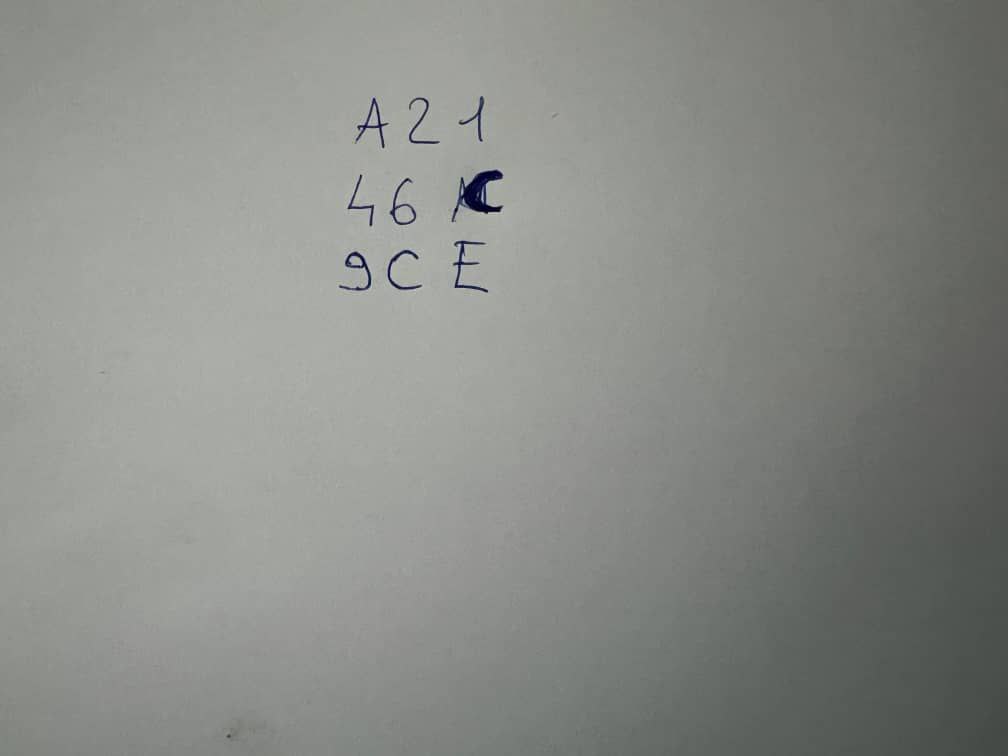 A21
46C
9CE